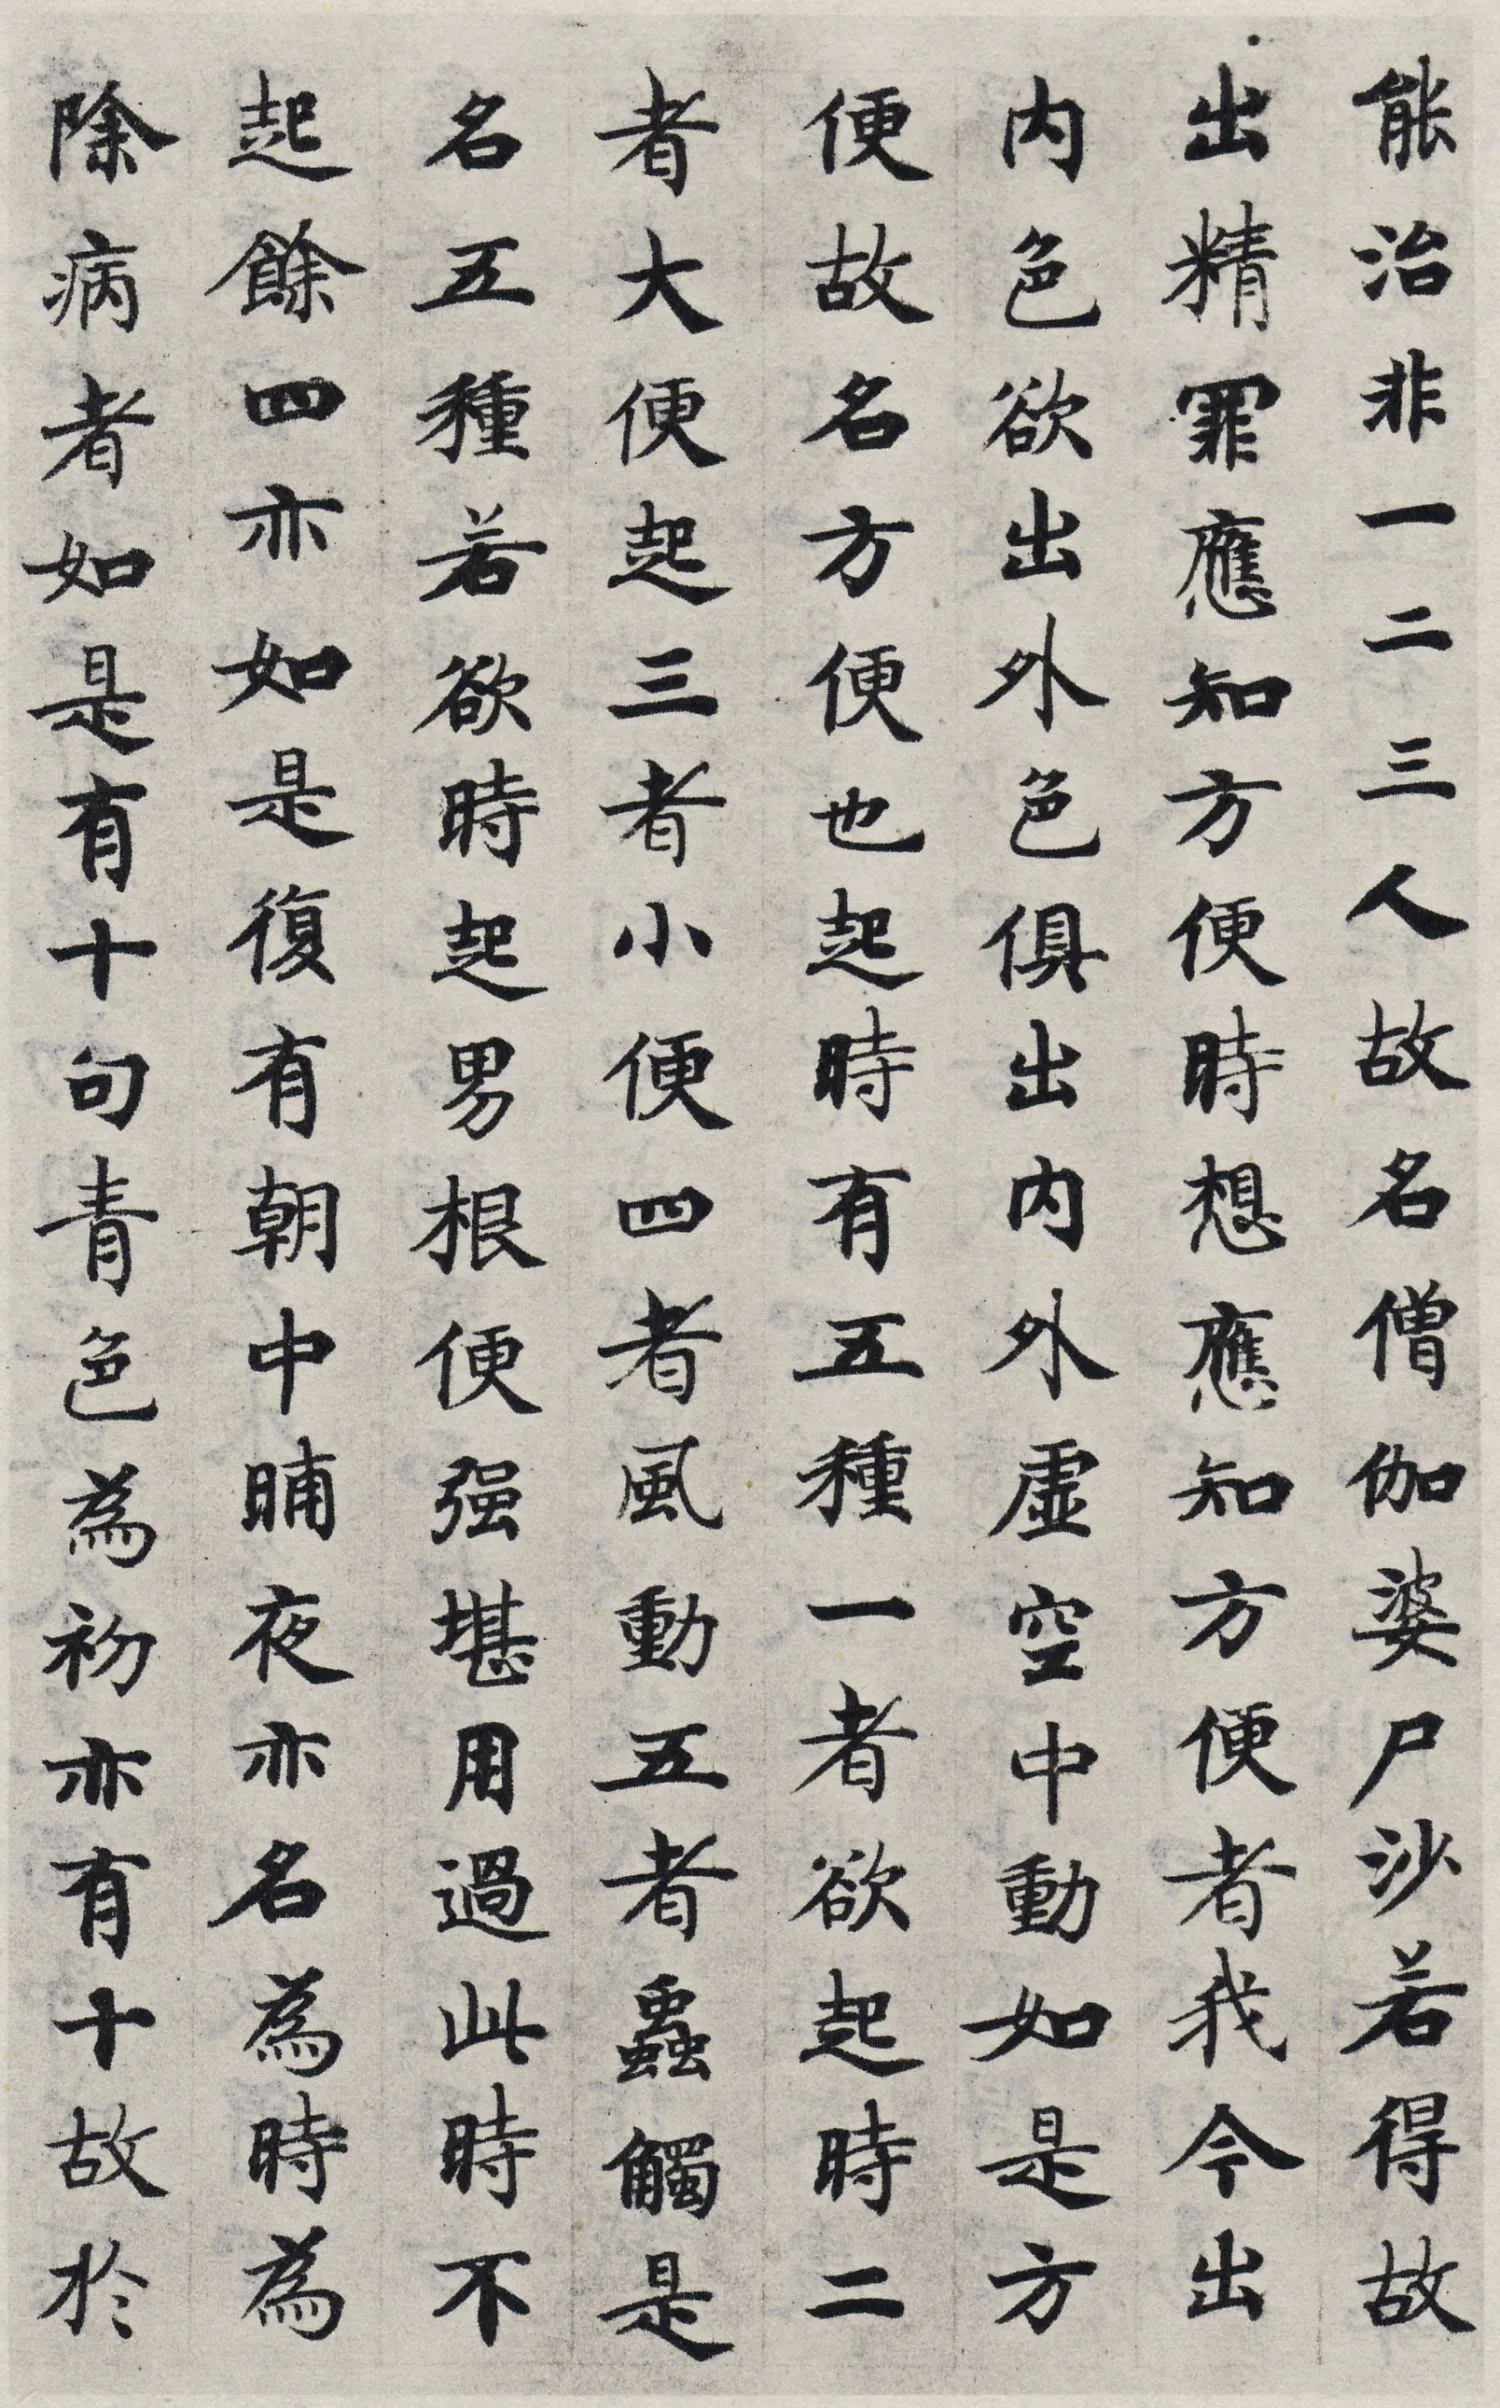 能治非一二三人故名僧伽婆尸沙若得故
出精罪應知方便時想應知方便者我今出
内色欲出外色俱出内外虚空中動如是方
便故名方便也起時有五種一者欲起時二
者大便起三者小便四者風動五者蟲觸是
名五種若欲時起男根便强堪用過此時不
起餘四亦如是復有朝中晡夜亦名為時為
除病者如是有十句青色為初亦有十故於